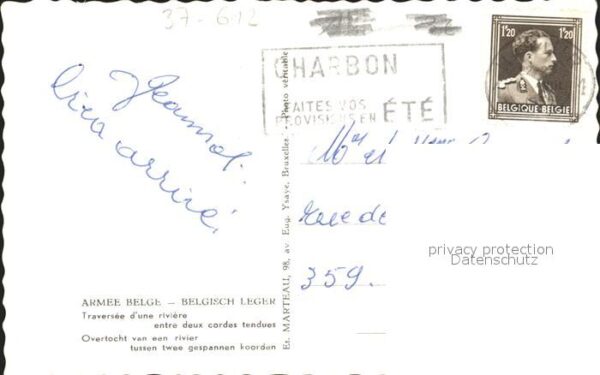 37-612
CHARBON
FAITES VOS
PROVISIONS EN ÉTÉ
1'20 1'20
BELGIQUE-BELGIË
Jeannot
bien arrivé,
Rue de
359.
privacy protection
Datenschutz
ARMEE BELGE — BELGISCH LEGER
Traversée d'une rivière
entre deux cordes tendues
Overtocht van een rivier
tussen twee gespannen koorden
Et. MARTEAU, 98, av. Eug. Ysaye, Bruxelles. - Photo véritable